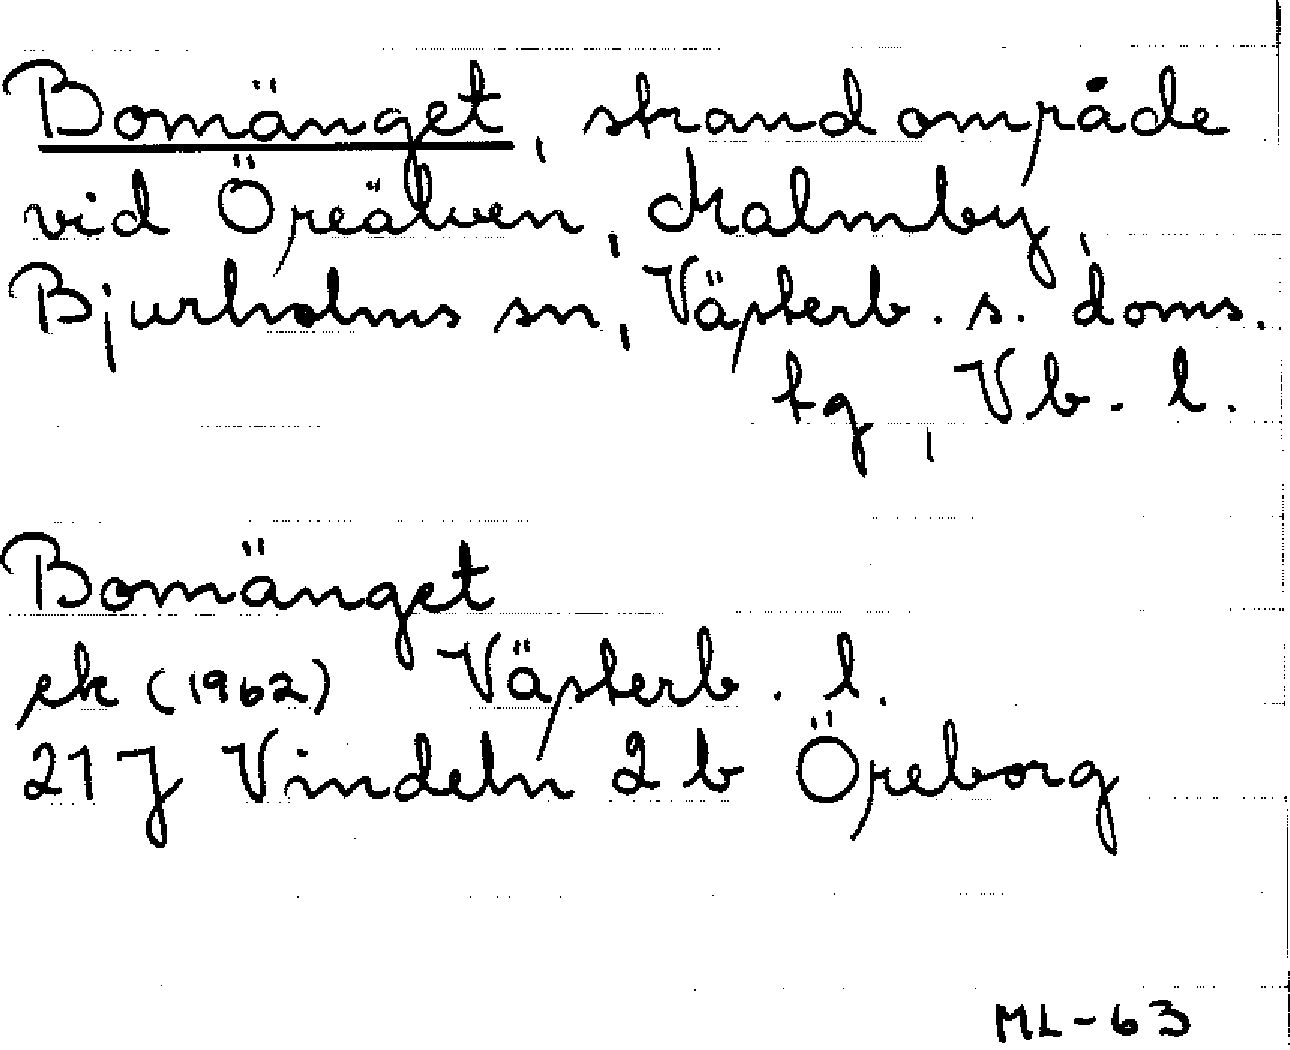 Bomänget, strandområde
vid Öreälven, Kalmby,
Bjurholms sn, Västerb. s. doms.
tg, Vb. l.
Bomänget
ek (1962) Västerb. l.
21 J Vindeln 2 b Öreborg
ML-63